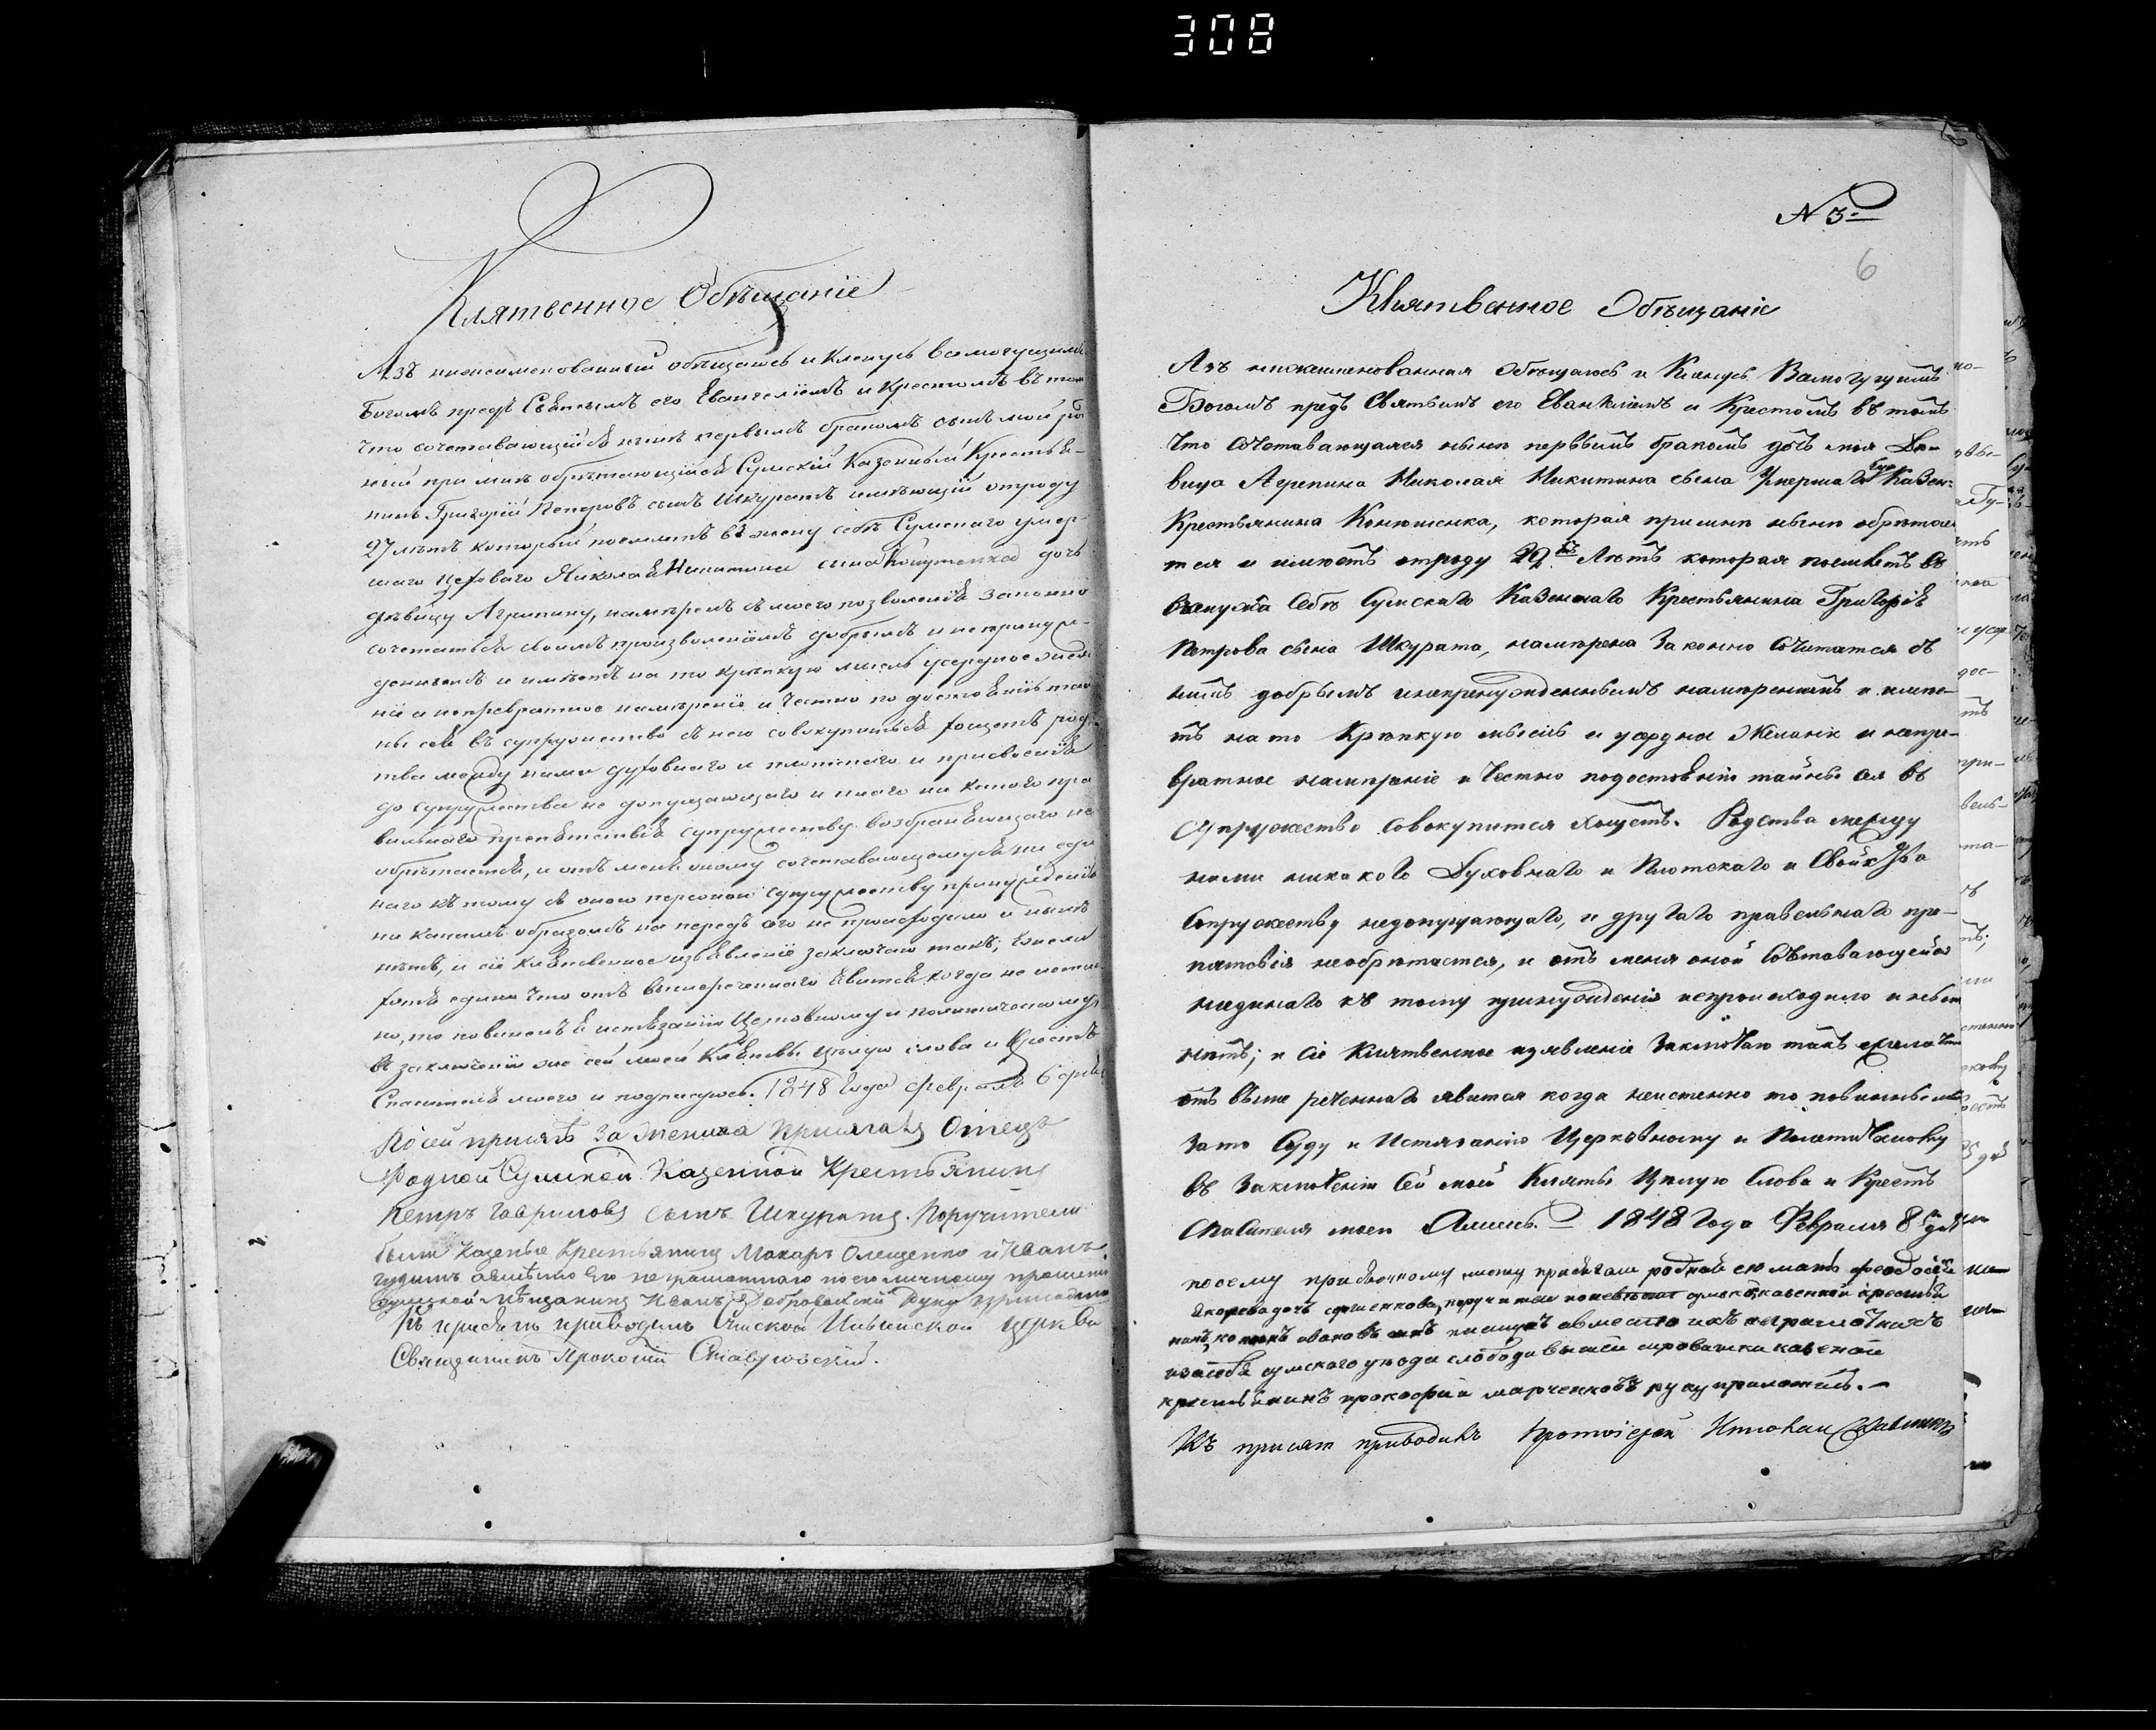 308
Клятвенное Обѣщаніе
Азъ нижеименованный обѣщаюсь и кленусь всемогущимъ
Богомъ предъ Святымъ его Евангеліемъ и Крестомъ въ томъ
что сочетавающійся нынѣ первымъ бракомъ сынъ мой род
ный при мнѣ обрѣтающійся Сумскій Казенный Крестья-
нинъ Григорій Петровъ сынъ Шкуратъ имѣющій отроду
27 лѣтъ который поемлетъ въ жену себѣ Сумскаго умер-
шаго Николая Никитина сына дочь
дѣвицу Агрипину, намѣренъ съ моего позволенія законно
сочетаться своимъ произволеніемъ добрымъ и непринуж-
деннымъ и имѣетъ на то крѣпкую мысль усердное жела
ніе и непревратное намѣреніе и честно по достоянію тай
ны сея въ супружество съ нею совокупиться хощетъ родс
тва между ними духовнаго и плотскаго и присвоенія
до супружества не допущающаго и инаго ни какого пра
вильнаго препятствія супружеству возбраняющаго не
обрѣтается, и отъ меня оному сочетавающемуся ни еди
наго къ тому съ оною персоною супружеству принужденія
ни какимъ образомъ на передъ сего не происходило и нынѣ
нѣтъ, и сіе клятвенное изъявленіе заключаю такъ; ежели
хотя едино что отъ вышереченнаго явится когда не истин
но, то повиненъ истязанію Церковному и политическому
въ заключеніи же сей моей Клятвы цѣлую слова и Крестъ
Спасителя моего и подписуюсь. 1848 Года Февраля 6 дня
По сей присягѣ за жениха присягалъ Отецъ
Родной Сумской Казенной Крестьянинъ
Петръ Гавриловъ сынъ Шкуратъ. Поручители
были Казеные Крестьянинъ Макаръ Олещенко и Иванъ
вмѣсто его неграмотнаго по его личному прошенію
сумской мѣщанинъ Иванъ руку приложилъ
Къ присягѣ приводилъ Сумской Ильинской церкви
Священникъ Прокопій Ставровскій.
N 3
6
Клятвенное Обѣщаніе
Азъ нижеименованная Обѣщаюсь и Клянусь Всемогущимъ
Богомъ предъ Святымъ его Евангеліемъ и Крестомъ въ томъ
Что Сочетавающаяся нынѣ первымъ бракомъ дочь моя Дѣ-
вица Агрепина Николая Никитина сына Умершаго Казен:
Крестьянина Конюшенка, которая примнѣ нынѣ обрѣтае
тся и имѣетъ отроду 22 Лѣтъ которая поемлетъ въ
мужа Себѣ Сумскаго Казеннаго Крестьянина Григорія
Петрова сына Шкурата, намѣрена Законно Сочитатся съ
нимъ добрымъ инепренужденнымъ намѣреніемъ и имѣе-
тъ на то Крѣпкую мысль и усердное Желаніе и непре-
вратное намѣреніе и Честно подостоянію тайны сея въ
Супружество Совокупится хощетъ. Родства между
ними никакого Духовнаго и Плотскаго и Свойства
Супружеству недопущающаго, и другаго правельнаго пре-
пятствія необрѣтается, и отъ меня оной Сочетавающейся
ниединаго къ тому принужденія непроисходило и нынѣ
нѣтъ; и Сіе Клятвенное изявленіе Заключаю такъ ежели что
отъ выше реченнаго явится когда неистенно то повинна
Зато Суду и Истязанію Церковному и Политическому
въ Заключеніи Сей моей Клятвы Цѣлую Слова и Крестъ
Спасителя моего Аминь. 1848 Года Февраля 8 дня
посему присяжному листу присягала родная ею мать феодосія
дочь поручители казенной крестья
нинъ авместо ихъ неграмотныхъ
сумского уезда слободы вышей сироватки казеной
крестьянинъ прокофий марченковъ руку приложилъ.
Къ присягѣ приводилъ Протоіерей